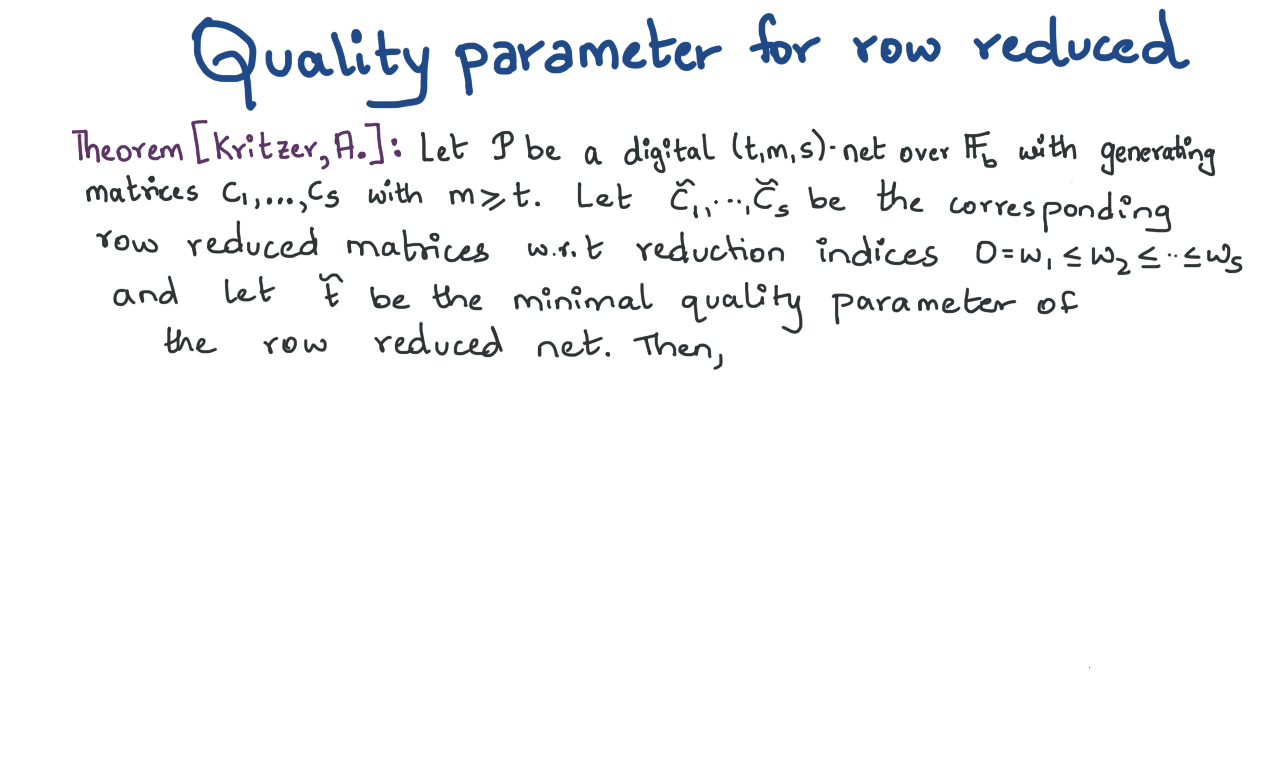 Quality parameter for row reduced
Theorem [Kritzer, A.]: Let P be a digital (t,m,s)-net over 𝔽_b with generating
matrices C₁,...,Cs with m ≥ t. Let C̆₁,...,C̆s be the corresponding
row reduced matrices w.r.t reduction indices 0=w₁ ≤ w₂ ≤ ... ≤ ws
and let t̆ be the minimal quality parameter of
the row reduced net. Then,